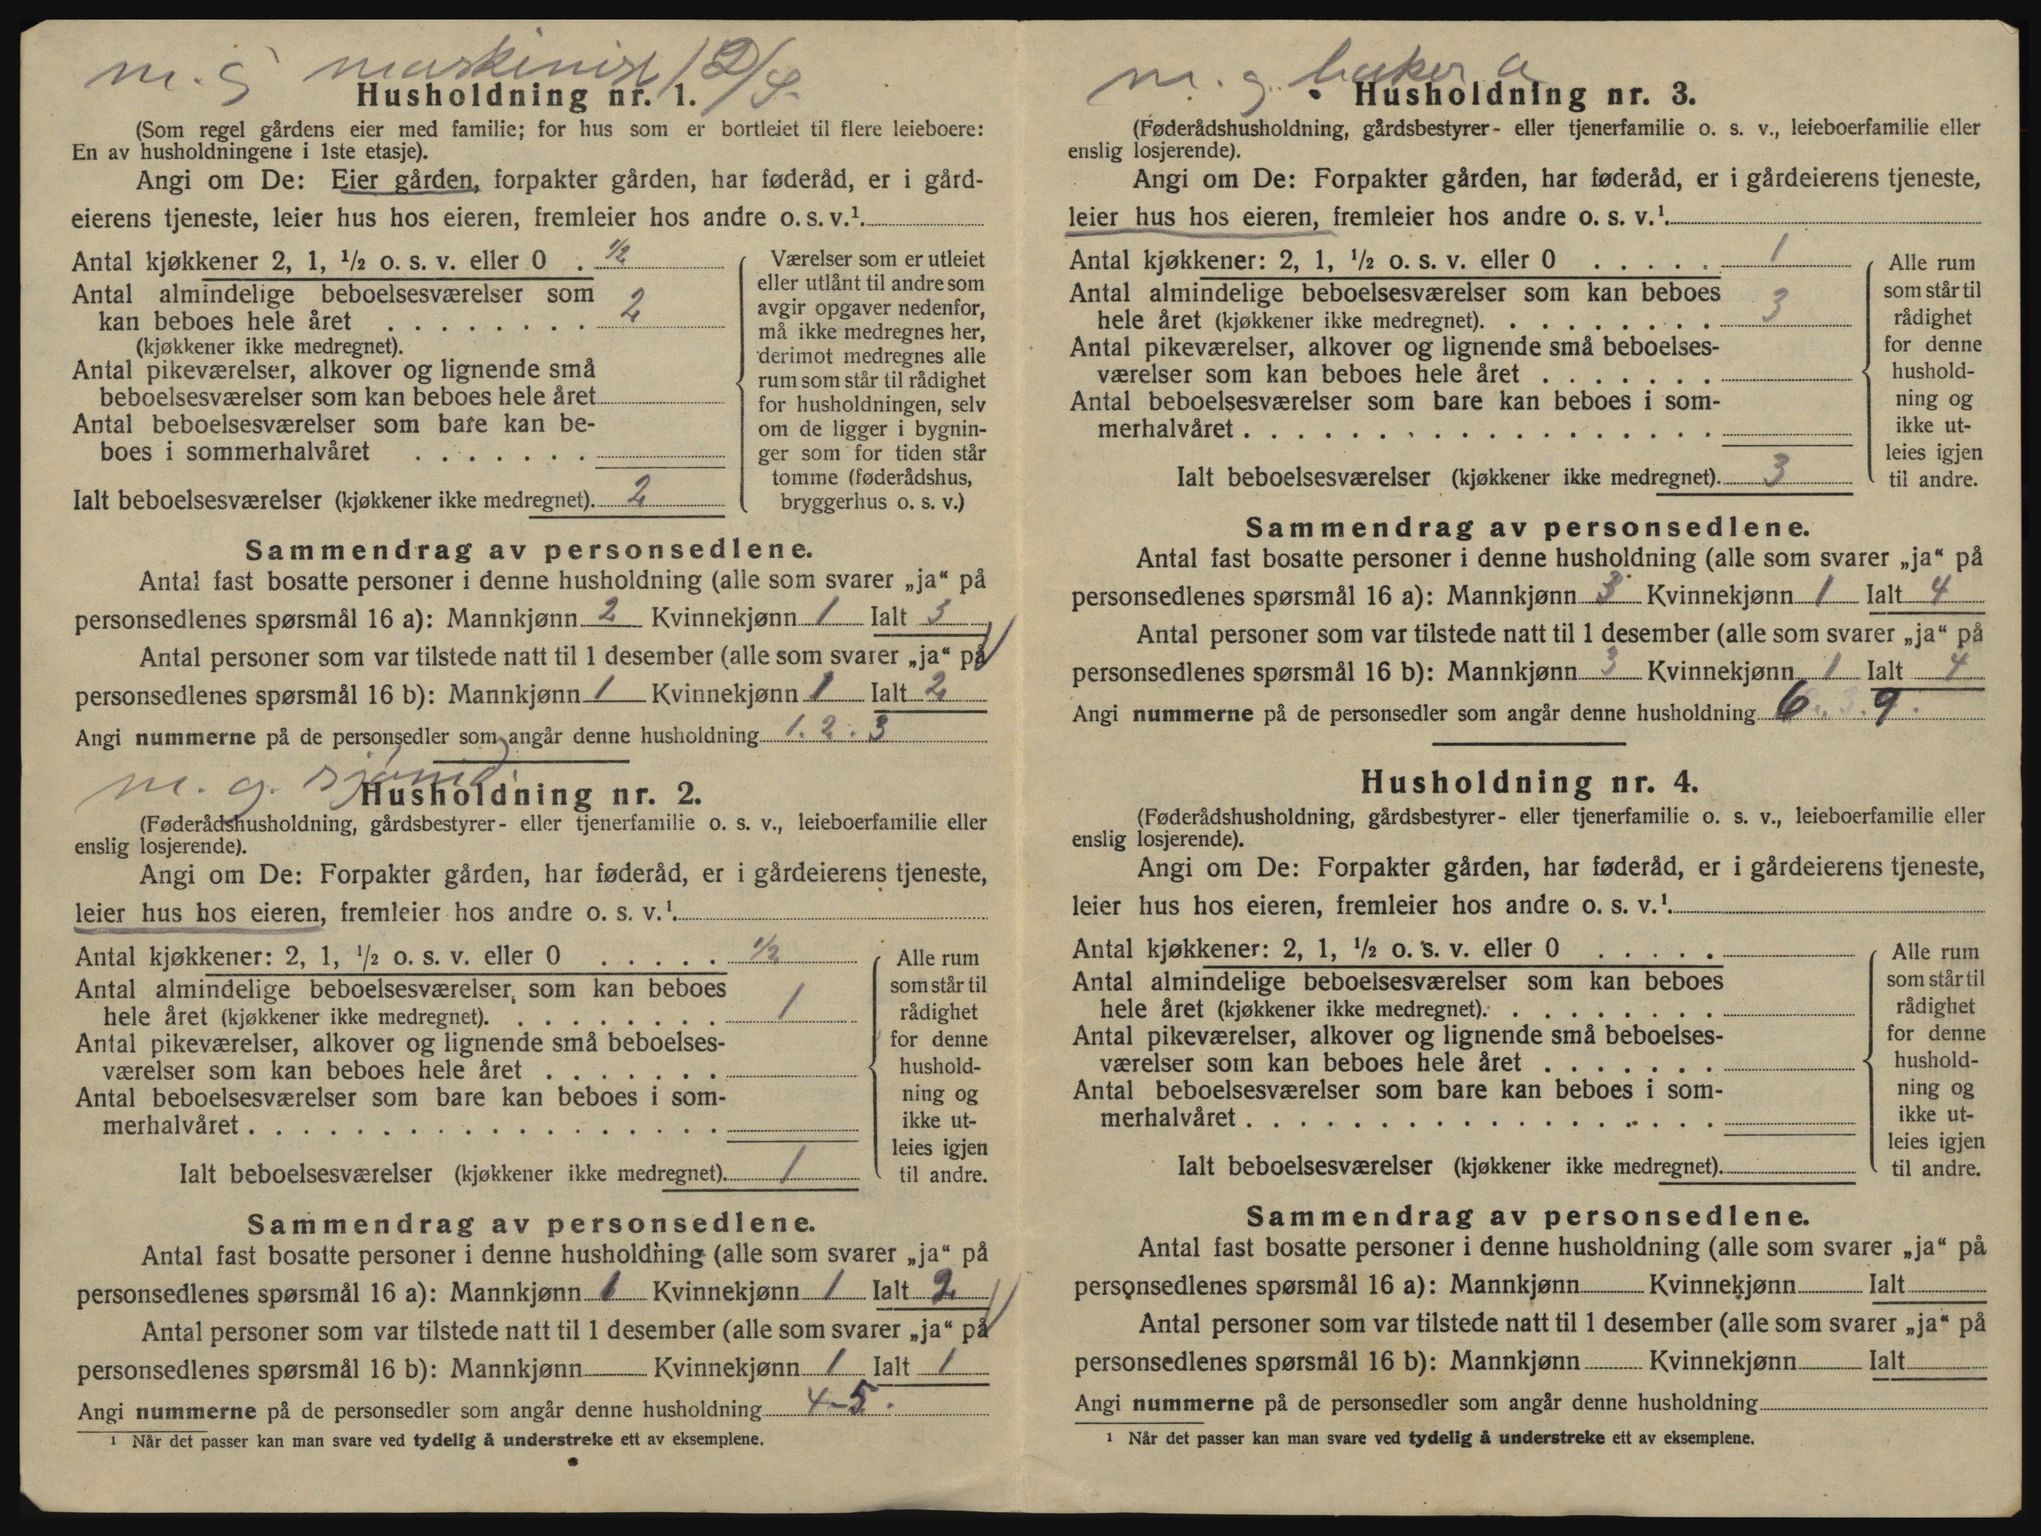 m. g maskinist
Husholdning nr. 1.
(Som regel gårdens eier med familie; for hus som er bortleiet til flere leieboere:
En av husholdningene i 1ste etasje).
Angi om De: Eier gården, forpakter gården, har føderåd, er i gård-
eierens tjeneste, leier hus hos eieren, fremleier hos andre o. s. v.¹
Antal kjøkkener 2, 1, ½ o. s. v. eller 0 . ½
Antal almindelige beboelsesværelser som
kan beboes hele året . . . . . . . . . 2
(kjøkkener ikke medregnet).
Antal pikeværelser, alkover og lignende små
beboelsesværelser som kan beboes hele året
Antal beboelsesværelser som bare kan be-
boes i sommerhalvåret . . . . . . .
Ialt beboelsesværelser (kjøkkener ikke medregnet). 2
Værelser som er utleiet
eller utlånt til andre som
avgir opgaver nedenfor,
må ikke medregnes her,
derimot medregnes alle
rum som står til rådighet
for husholdningen, selv
om de ligger i bygnin-
ger som for tiden står
tomme (føderådshus,
bryggerhus o. s. v.)
Sammendrag av personsedlene.
Antal fast bosatte personer i denne husholdning (alle som svarer „ja“ på
personsedlenes spørsmål 16 a): Mannkjønn 2 Kvinnekjønn 1 Ialt 3
Antal personer som var tilstede natt til 1 desember (alle som svarer „ja“ på
personsedlenes spørsmål 16 b): Mannkjønn 1 Kvinnekjønn 1 Ialt 2
Angi nummerne på de personsedler som angår denne husholdning 1. 2. 3
m. g. sjøm.
Husholdning nr. 2.
(Føderådshusholdning, gårdsbestyrer- eller tjenerfamilie o. s. v., leieboerfamilie eller
enslig losjerende).
Angi om De: Forpakter gården, har føderåd, er i gårdeierens tjeneste,
leier hus hos eieren, fremleier hos andre o. s. v.¹.
Antal kjøkkener: 2, 1, ½ o. s. v. eller 0 . . . . . ½
Antal almindelige beboelsesværelser som kan beboes
hele året (kjøkkener ikke medregnet). . . . . . . . . 1
Antal pikeværelser, alkover og lignende små beboelses-
værelser som kan beboes hele året . . . . . . .
Antal beboelsesværelser som bare kan beboes i som-
merhalvåret . . . . . . . . . . . . . . . . . .
Ialt beboelsesværelser (kjøkkener ikke medregnet). 1
Alle rum
som står til
rådighet
for denne
hushold-
ning og
ikke ut-
leies igjen
til andre.
Sammendrag av personsedlene.
Antal fast bosatte personer i denne husholdning (alle som svarer „ja“ på
personsedlenes spørsmål 16 a): Mannkjønn 1 Kvinnekjønn 1 Ialt 2
Antal personer som var tilstede natt til 1 desember (alle som svarer „ja“ på
personsedlenes spørsmål 16 b): Mannkjønn Kvinnekjønn 1 Ialt 1
Angi nummerne på de personsedler som angår denne husholdning 4-5.
¹ Når det passer kan man svare ved tydelig å understreke ett av eksemplene.
m. g. baker a
Husholdning nr. 3.
(Føderådshusholdning, gårdsbestyrer- eller tjenerfamilie o. s. v., leieboerfamilie eller
enslig losjerende).
Angi om De: Forpakter gården, har føderåd, er i gårdeierens tjeneste,
leier hus hos eieren, fremleier hos andre o. s. v.¹.
Antal kjøkkener: 2, 1, ½ o. s. v. eller 0 . . . . . 1
Antal almindelige beboelsesværelser som kan beboes
hele året (kjøkkener ikke medregnet). . . . . . . . . 3
Antal pikeværelser, alkover og lignende små beboelses-
værelser som kan beboes hele året . . . . . . .
Antal beboelsesværelser som bare kan beboes i som-
merhalvåret . . . . . . . . . . . . . . . . . .
Ialt beboelsesværelser (kjøkkener ikke medregnet). 3
Alle rum
som står til
rådighet
for denne
hushold-
ning og
ikke ut-
leies igjen
til andre.
Sammendrag av personsedlene.
Antal fast bosatte personer i denne husholdning (alle som svarer „ja“ på
personsedlenes spørsmål 16 a): Mannkjønn 3 Kvinnekjønn 1 Ialt 4
Antal personer som var tilstede natt til 1 desember (alle som svarer „ja“ på
personsedlenes spørsmål 16 b): Mannkjønn 3 Kvinnekjønn 1 Ialt 4
Angi nummerne på de personsedler som angår denne husholdning 6 9
Husholdning nr. 4.
(Føderådshusholdning, gårdsbestyrer- eller tjenerfamilie o. s. v., leieboerfamilie eller
enslig losjerende).
Angi om De: Forpakter gården, har føderåd, er i gårdeierens tjeneste,
leier hus hos eieren, fremleier hos andre o. s. v.¹.
Antal kjøkkener: 2, 1, ½ o. s. v. eller 0 . . . . .
Antal almindelige beboelsesværelser som kan beboes
hele året (kjøkkener ikke medregnet). . . . . . . . .
Antal pikeværelser, alkover og lignende små beboelses-
værelser som kan beboes hele året . . . . . . .
Antal beboelsesværelser som bare kan beboes i som-
merhalvåret . . . . . . . . . . . . . . . . . .
Ialt beboelsesværelser (kjøkkener ikke medregnet).
Alle rum
som står til
rådighet
for denne
hushold-
ning og
ikke ut-
leies igjen
til andre.
Sammendrag av personsedlene.
Antal fast bosatte personer i denne husholdning (alle som svarer „ja“ på
personsedlenes spørsmål 16 a): Mannkjønn Kvinnekjønn Ialt
Antal personer som var tilstede natt til 1 desember (alle som svarer „ja“ på
personsedlenes spørsmål 16 b): Mannkjønn Kvinnekjønn Ialt
Angi nummerne på de personsedler som angår denne husholdning
¹ Når det passer kan man svare ved tydelig å understreke ett av eksemplene.